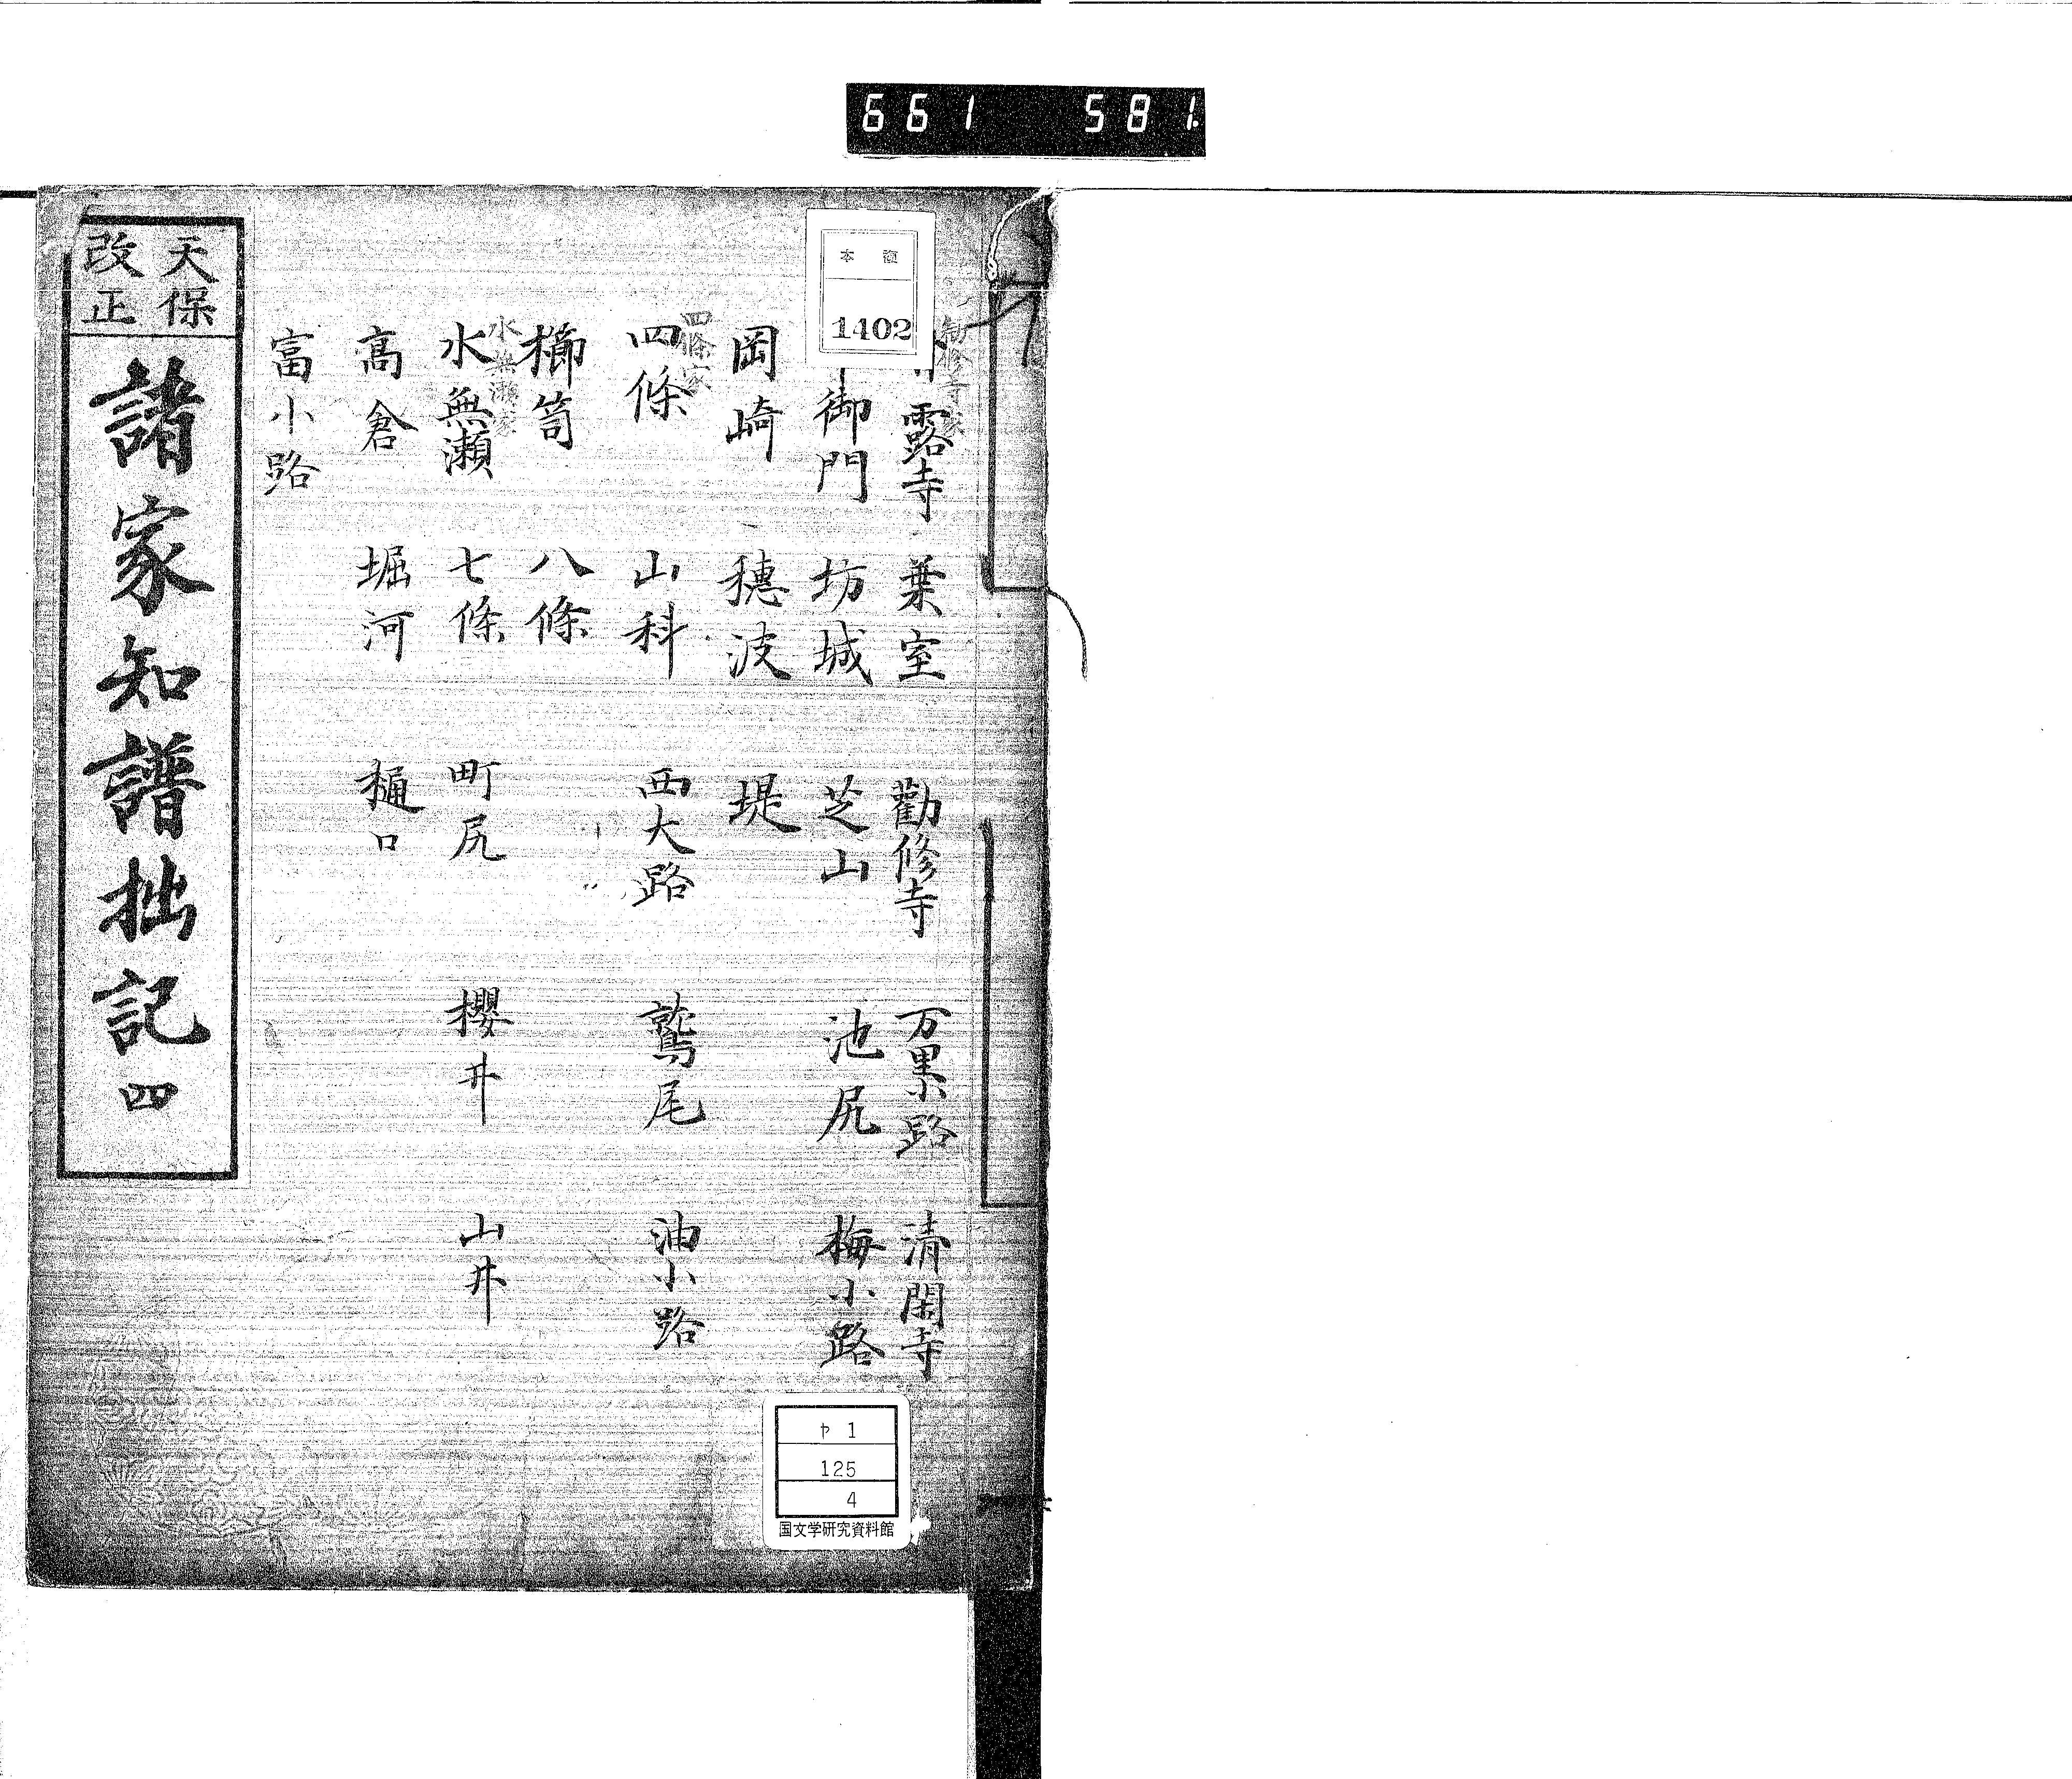 661 581
複本
1402
勧修寺家
露寺 葉室 勸修寺 万里小路 清閑寺
御門 坊城 芝山 池尻 梅小路
岡崎 穗波 堤
四條家
四條 山科 西大路 鷲尾 油小路
櫛笥 八條
水無瀬家
水無瀬 七條 町尻 櫻井 山井
高倉 堀河 樋口
富小路
天保
改正
諸家知譜拙記 四
ヤ1
125
4
国文学研究資料館